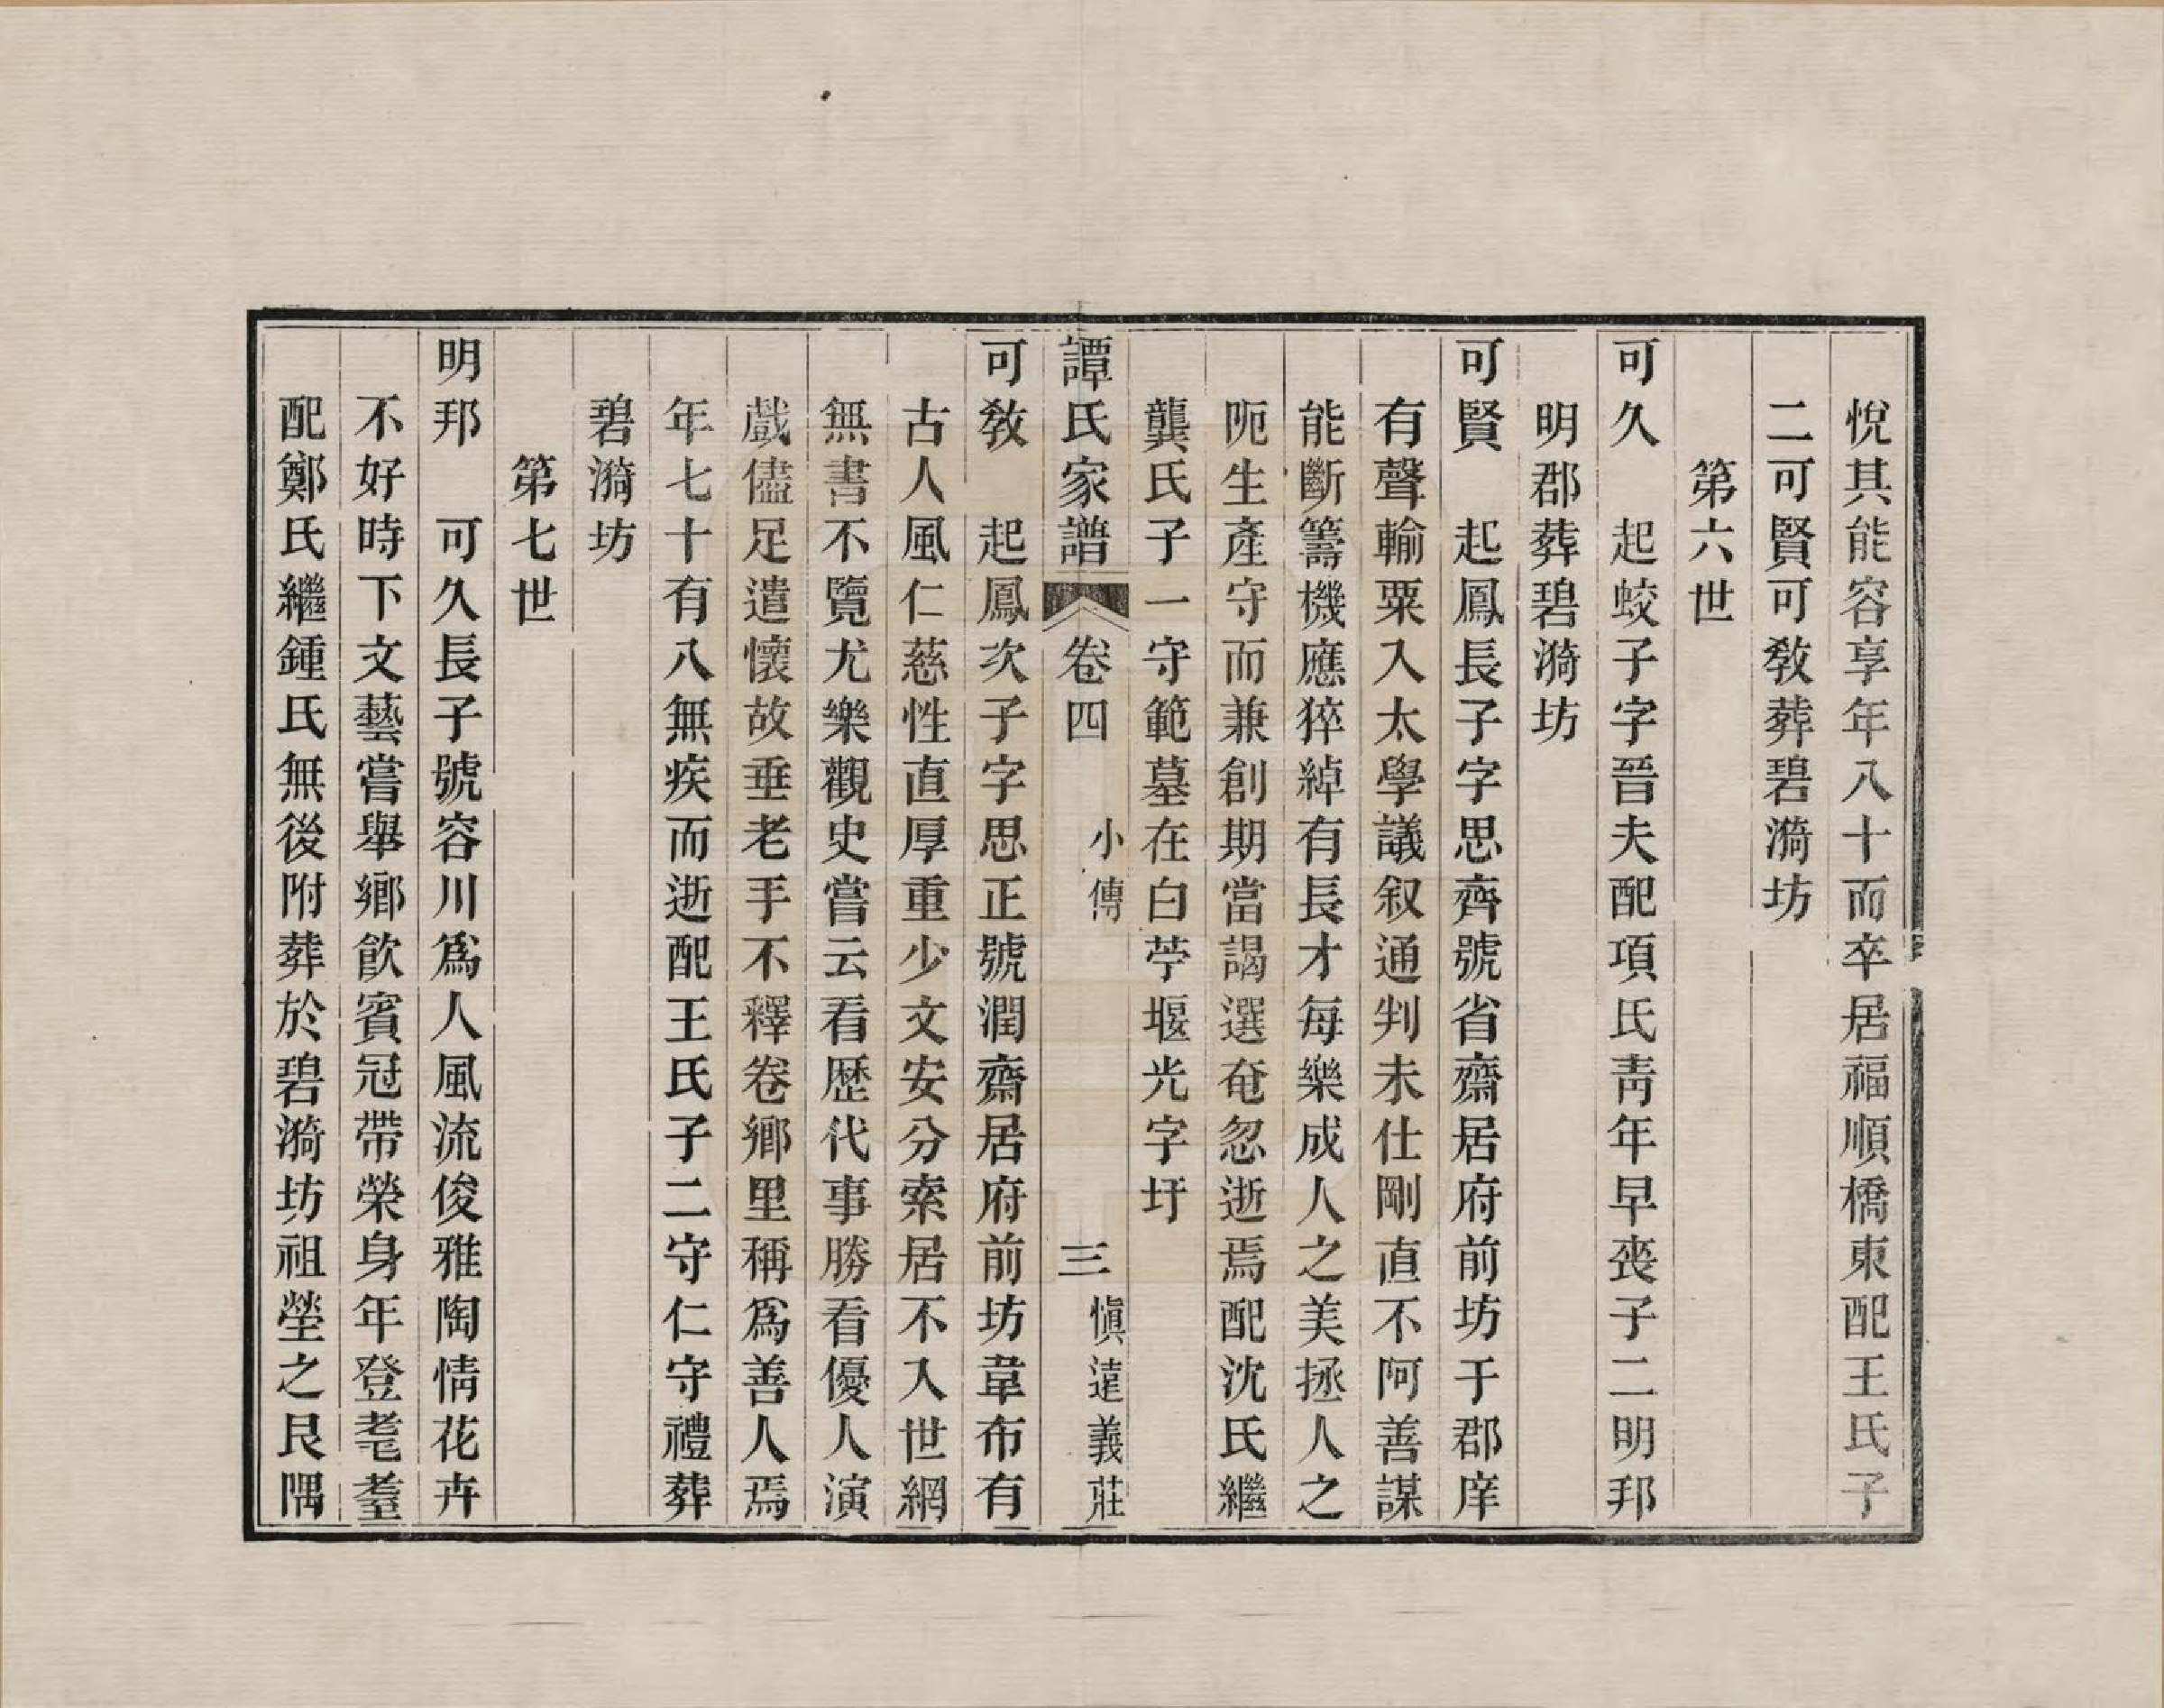 悅其能容享年八十而卒居福順橋東配王氏子
二可賢可教葬碧漪坊
第六世
可久　起蛟子字晉夫配項氏靑年早喪子二明邦
明郡葬碧漪坊
可賢　起鳳長子字思齊號省齋居府前坊于郡庠
有聲輸粟入太學議叙通判未仕剛直不阿善謀
能斷籌機應猝綽有長才每樂成人之美拯人之
阨生產守而兼創期當謁選奄忽逝焉配沈氏繼
龔氏子一守範墓在白苧堰光字圩
譚氏家譜　卷四　小傳　三　愼遠義莊
可教　起鳳次子字思正號潤齋居府前坊韋布有
古人風仁慈性直厚重少文安分索居不入世網
無書不覽尤樂觀史嘗云看歷代事勝看優人演
戲儘足遣懷故垂老手不釋卷鄉里稱爲善人焉
年七十有八無疾而逝配王氏子二守仁守禮葬
碧漪坊
第七世
明邦　可久長子號容川爲人風流俊雅陶情花卉
不好時下文藝嘗舉鄉飲賓冠帶榮身年登耄耋
配鄭氏繼鍾氏無後附葬於碧漪坊祖塋之艮隅